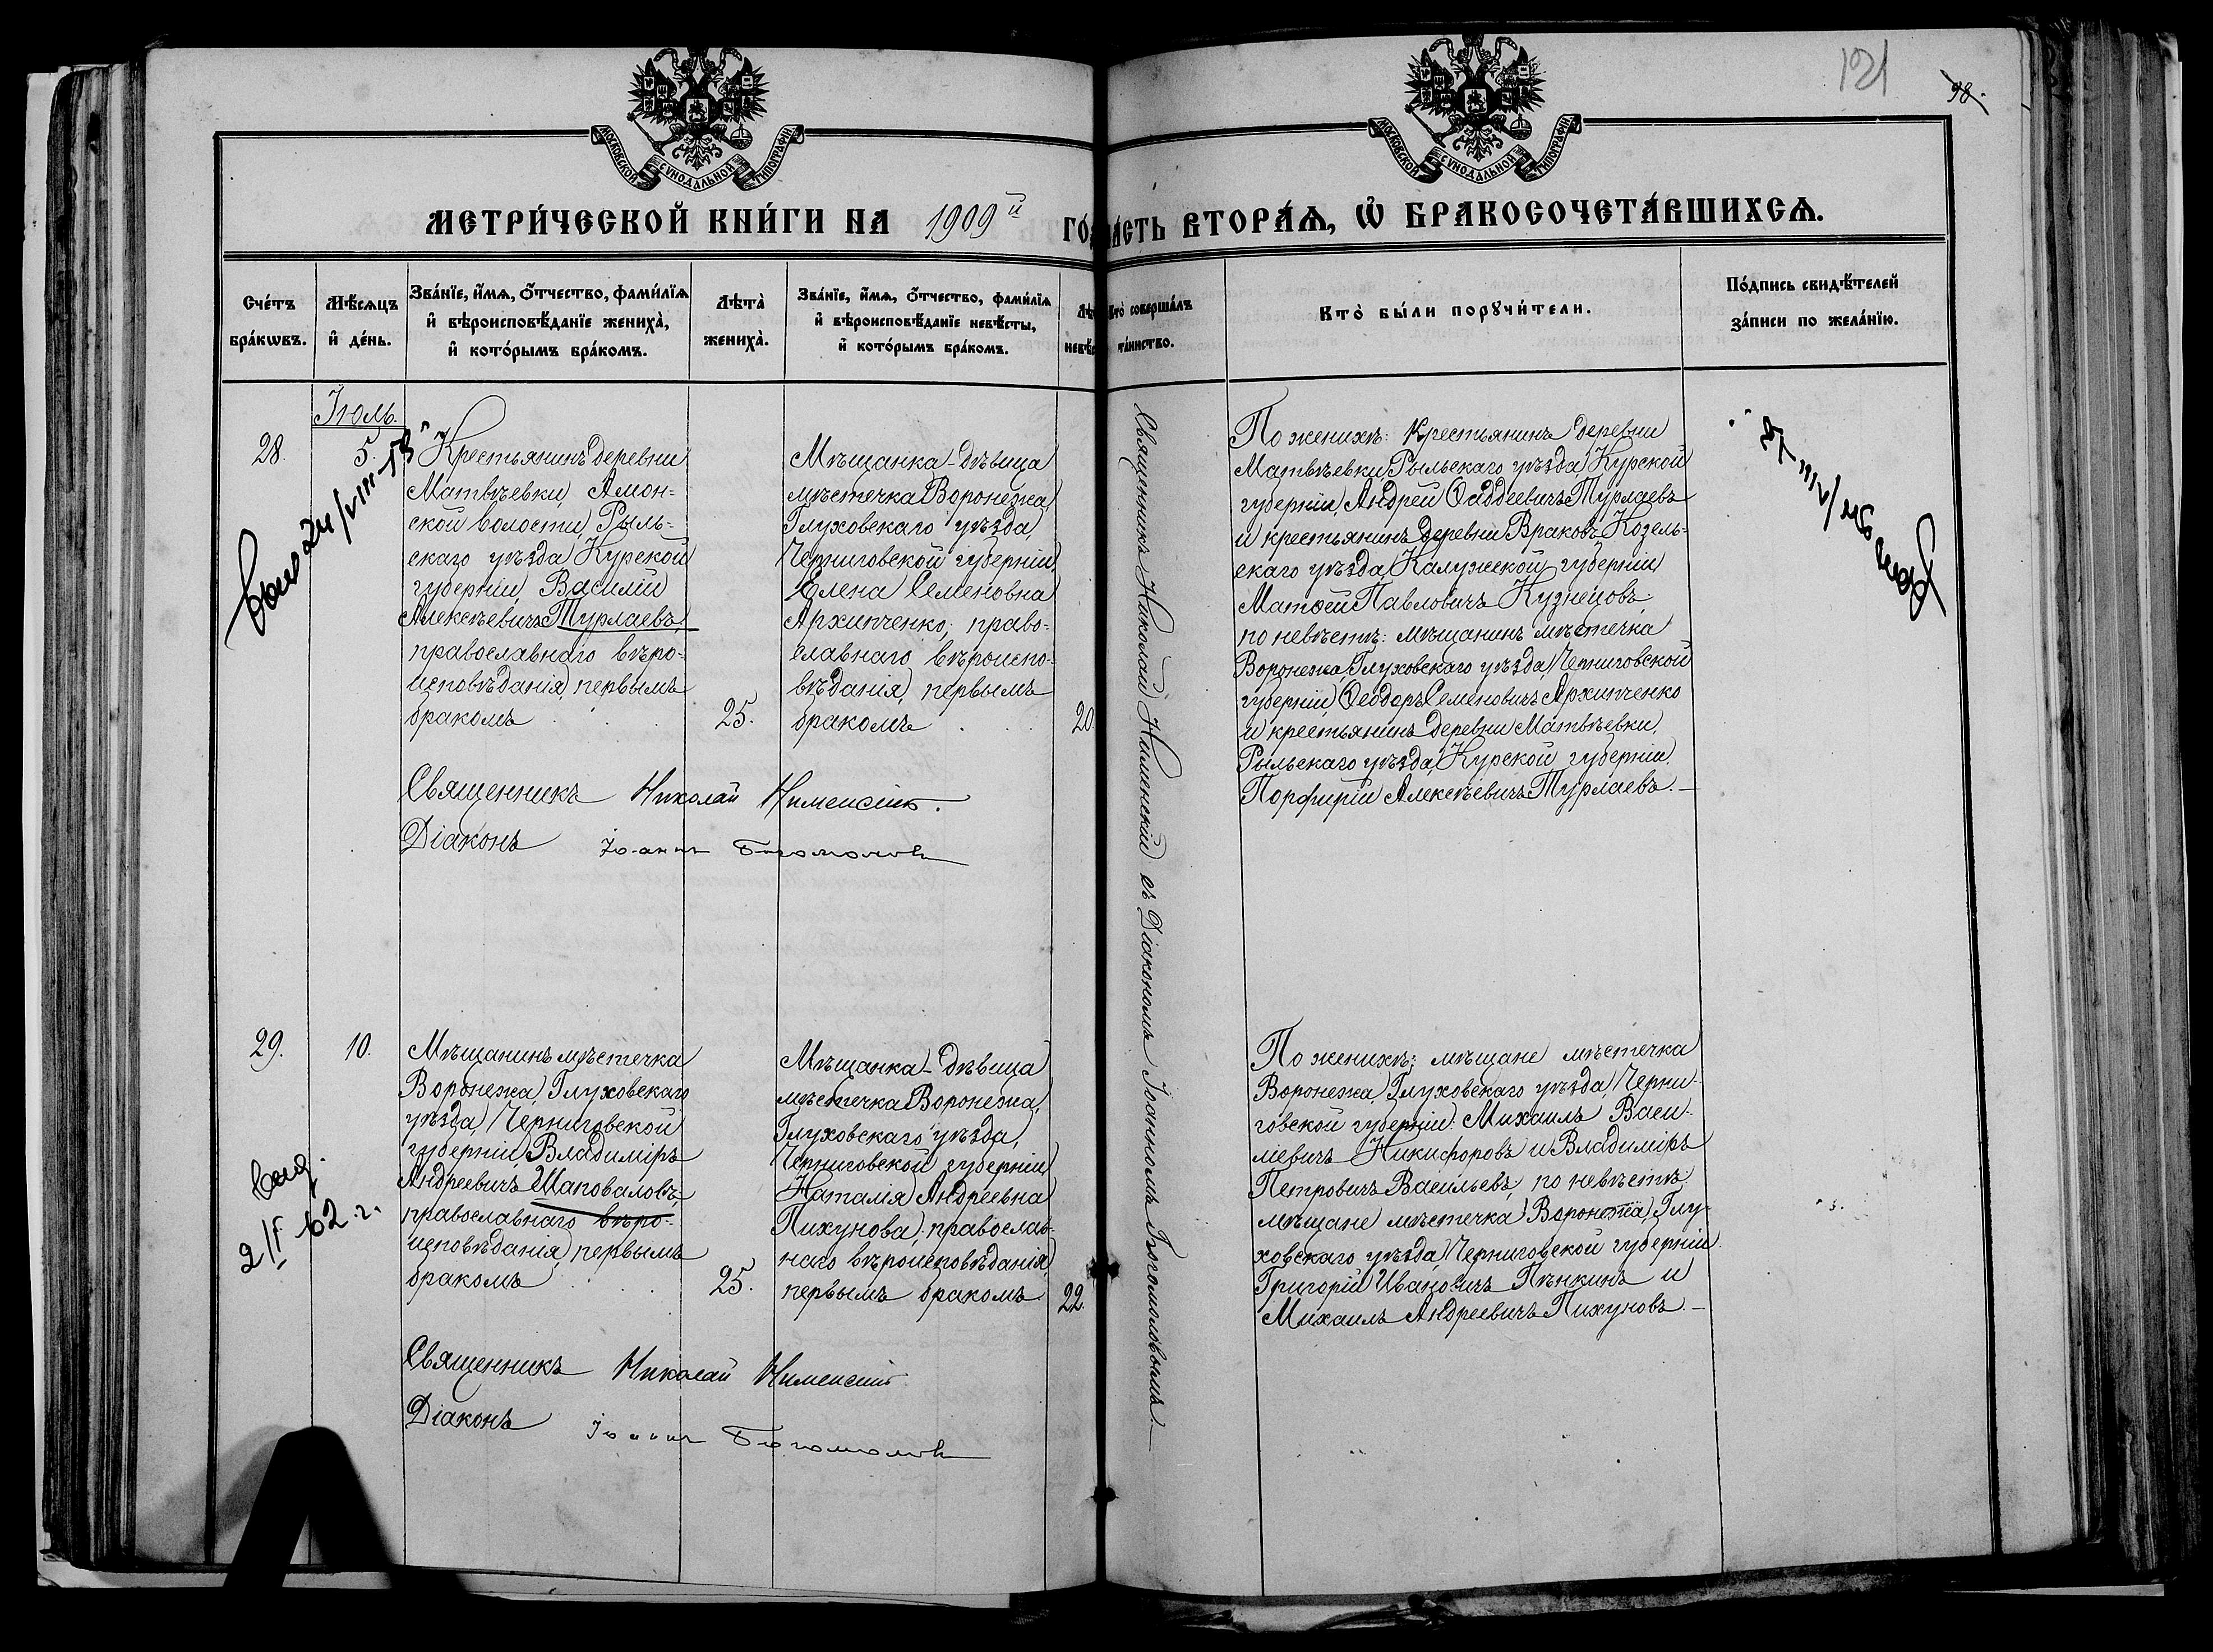 121
98.
МОСКОВСКОЙ СѴНОДАЛЬНОЙ ТИПОГРАФІИ
МОСКОВСКОЙ СѴНОДАЛЬНОЙ ТИПОГРАФІИ
МЕТРИ́ЧЕСКОЙ КНИ́ГИ НА 1909й ГО́
ЧА́СТЬ ВТОРА́Ѧ, Ѽ БРАКОСОЧЕТА́ВШИХСѦ.
Сче́тъ
бра́кѡвъ.
Мѣ́сѧцъ
и҆ де́нь.
Зва́нїе, и҆́мѧ, ѻ҆́тчество, фами́лїѧ
и҆ вѣроисповѣ́данїе жениха̀,
и҆ кото́рымъ бра́комъ.
Лѣта̀
жениха̀.
Зва́нїе, и҆́мѧ, ѻ҆́тчество, фами́лїѧ
и҆ вѣроисповѣ́данїе невѣ́сты,
и҆ кото́рымъ бра́комъ.
Лѣ
невѣ́с
Кто̀ соверша́лъ
та́инство.
Кто̀ бы́ли порꙋчи́тели.
По́дпись свидѣ́телей
за́писи по жела́нїю.
Іюль.
28.
5.
Крестьянинъ деревни
Матвѣевки, Амон=
ской волости, Рыль=
скаго уѣзда, Курской
губерніи, Василій
Алексѣевичъ Турлаевъ,
православнаго вѣро=
исповѣданія, первымъ
бракомъ
25.
Мѣщанка-дѣвица
мѣстечка Воронежа,
Глуховскаго уѣзда,
Черниговской губерніи,
Елена Семеновна
Архипченко, право=
славнаго вѣроиспо=
вѣданія, первымъ
бракомъ
20.
Священникъ Николай Нименскій.
Діаконъ Іоаннъ Богомоловъ
Священникъ Николай Нименскій съ Діакономъ Іоанномъ Богомоловымъ.
По женихѣ: крестьянинъ деревни
Матвѣевки, Рыльскаго уѣзда, Курской
губерніи, Андрей Ѳаддеевичъ Турлаевъ
и крестьянинъ деревни Враковъ, Козель=
скаго уѣзда, Калужской губерніи
Матѳей Павловичъ Кузнецовъ,
по невѣстѣ: мѣщанинъ мѣстечка
Воронежа, Глуховскаго уѣзда, Черниговской
губерніи, Ѳеодоръ Семеновичъ Архипченко
и крестьянинъ деревни Матвѣевки,
Рыльскаго уѣзда, Курской губерніи,
Порфирій Алексѣевичъ Турлаевъ.—
29.
10.
Мѣщанинъ мѣстечка
Воронежа, Глуховскаго
уѣзда, Черниговской
губерніи, Владиміръ
Андреевичъ Шаповаловъ,
православнаго вѣро=
исповѣданія, первымъ
бракомъ
25.
Мѣщанка-дѣвица
мѣстечка Воронежа,
Глуховскаго уѣзда,
Черниговской губерніи
Наталія Андреевна
Пихунова, православ=
наго вѣроисповѣданія,
первымъ бракомъ
22.
2/V 62 г.
Священникъ Николай Нименскій
Діаконъ Іоаннъ Богомоловъ
По женихѣ: мѣщане мѣстечка
Воронежа, Глуховскаго уѣзда, Черни-
говской губерніи: Михаилъ Васи-
ліевичъ Никифоровъ и Владиміръ
Петровичъ Васильевъ, по невѣстѣ:
мѣщане мѣстечка Воронежа, Глу-
ховскаго уѣзда, Черниговской губерніи
Григорій Ивановичъ Пѣнкинъ и
Михаилъ Андреевичъ Пихуновъ.—